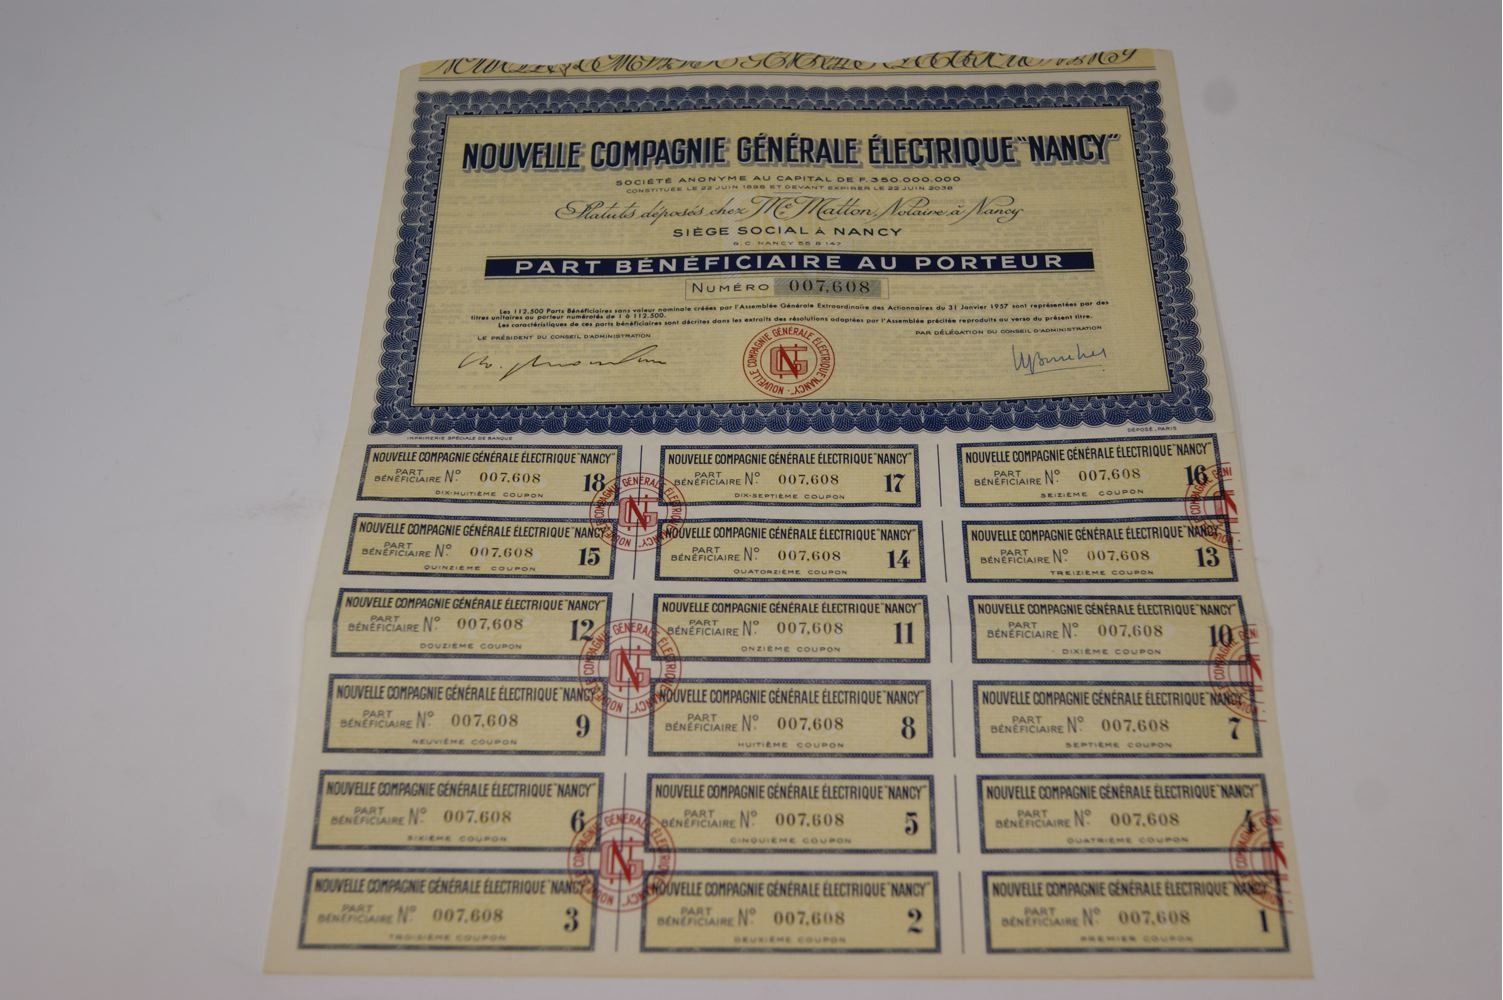 NOUVELLE COMPAGNIE GÉNÉRALE ÉLECTRIQUE "NANCY"
SOCIÉTÉ ANONYME AU CAPITAL DE F. 350.000.000
CONSTITUÉE LE 22 JUIN 1898 ET DEVANT EXPIRER LE 22 JUIN 2038
Statuts déposés chez Me Matton, Notaire, à Nancy
SIÈGE SOCIAL À NANCY
R. C. NANCY 55 B 147
PART BÉNÉFICIAIRE AU PORTEUR
NUMÉRO 007,608
Les 112.500 Parts Bénéficiaires sans valeur nominale créées par l'Assemblée Générale Extraordinaire des Actionnaires du 31 Janvier 1957 sont représentées par des
titres unitaires au porteur numérotés de 1 à 112.500.
Les caractéristiques de ces parts bénéficiaires sont décrites dans les extraits des résolutions adoptées par l'Assemblée précitée reproduits au verso du présent titre.
LE PRÉSIDENT DU CONSEIL D'ADMINISTRATION
PAR DÉLÉGATION DU CONSEIL D'ADMINISTRATION
NOUVELLE COMPAGNIE GÉNÉRALE ÉLECTRIQUE "NANCY"
IMPRIMERIE SPÉCIALE DE BANQUE
DÉPOSÉ, PARIS
NOUVELLE COMPAGNIE GÉNÉRALE ÉLECTRIQUE "NANCY"
PART BÉNÉFICIAIRE No 007,608 18
DIX-HUITIÈME COUPON
NOUVELLE COMPAGNIE GÉNÉRALE ÉLECTRIQUE "NANCY"
PART BÉNÉFICIAIRE No 007,608 17
DIX-SEPTIÈME COUPON
NOUVELLE COMPAGNIE GÉNÉRALE ÉLECTRIQUE "NANCY"
PART BÉNÉFICIAIRE No 007,608 16
SEIZIÈME COUPON
NOUVELLE COMPAGNIE GÉNÉRALE ÉLECTRIQUE "NANCY"
PART BÉNÉFICIAIRE No 007,608 15
QUINZIÈME COUPON
NOUVELLE COMPAGNIE GÉNÉRALE ÉLECTRIQUE "NANCY"
PART BÉNÉFICIAIRE No 007,608 14
QUATORZIÈME COUPON
NOUVELLE COMPAGNIE GÉNÉRALE ÉLECTRIQUE "NANCY"
PART BÉNÉFICIAIRE No 007,608 13
TREIZIÈME COUPON
NOUVELLE COMPAGNIE GÉNÉRALE ÉLECTRIQUE "NANCY"
PART BÉNÉFICIAIRE No 007,608 12
DOUZIÈME COUPON
NOUVELLE COMPAGNIE GÉNÉRALE ÉLECTRIQUE "NANCY"
PART BÉNÉFICIAIRE No 007,608 11
ONZIÈME COUPON
NOUVELLE COMPAGNIE GÉNÉRALE ÉLECTRIQUE "NANCY"
PART BÉNÉFICIAIRE No 007,608 10
DIXIÈME COUPON
NOUVELLE COMPAGNIE GÉNÉRALE ÉLECTRIQUE "NANCY"
PART BÉNÉFICIAIRE No 007,608 9
NEUVIÈME COUPON
NOUVELLE COMPAGNIE GÉNÉRALE ÉLECTRIQUE "NANCY"
PART BÉNÉFICIAIRE No 007,608 8
HUITIÈME COUPON
NOUVELLE COMPAGNIE GÉNÉRALE ÉLECTRIQUE "NANCY"
PART BÉNÉFICIAIRE No 007,608 7
SEPTIÈME COUPON
NOUVELLE COMPAGNIE GÉNÉRALE ÉLECTRIQUE "NANCY"
PART BÉNÉFICIAIRE No 007,608 6
SIXIÈME COUPON
NOUVELLE COMPAGNIE GÉNÉRALE ÉLECTRIQUE "NANCY"
PART BÉNÉFICIAIRE No 007,608 5
CINQUIÈME COUPON
NOUVELLE COMPAGNIE GÉNÉRALE ÉLECTRIQUE "NANCY"
PART BÉNÉFICIAIRE No 007,608 4
QUATRIÈME COUPON
NOUVELLE COMPAGNIE GÉNÉRALE ÉLECTRIQUE "NANCY"
PART BÉNÉFICIAIRE No 007,608 3
TROISIÈME COUPON
NOUVELLE COMPAGNIE GÉNÉRALE ÉLECTRIQUE "NANCY"
PART BÉNÉFICIAIRE No 007,608 2
DEUXIÈME COUPON
NOUVELLE COMPAGNIE GÉNÉRALE ÉLECTRIQUE "NANCY"
PART BÉNÉFICIAIRE No 007,608 1
PREMIER COUPON